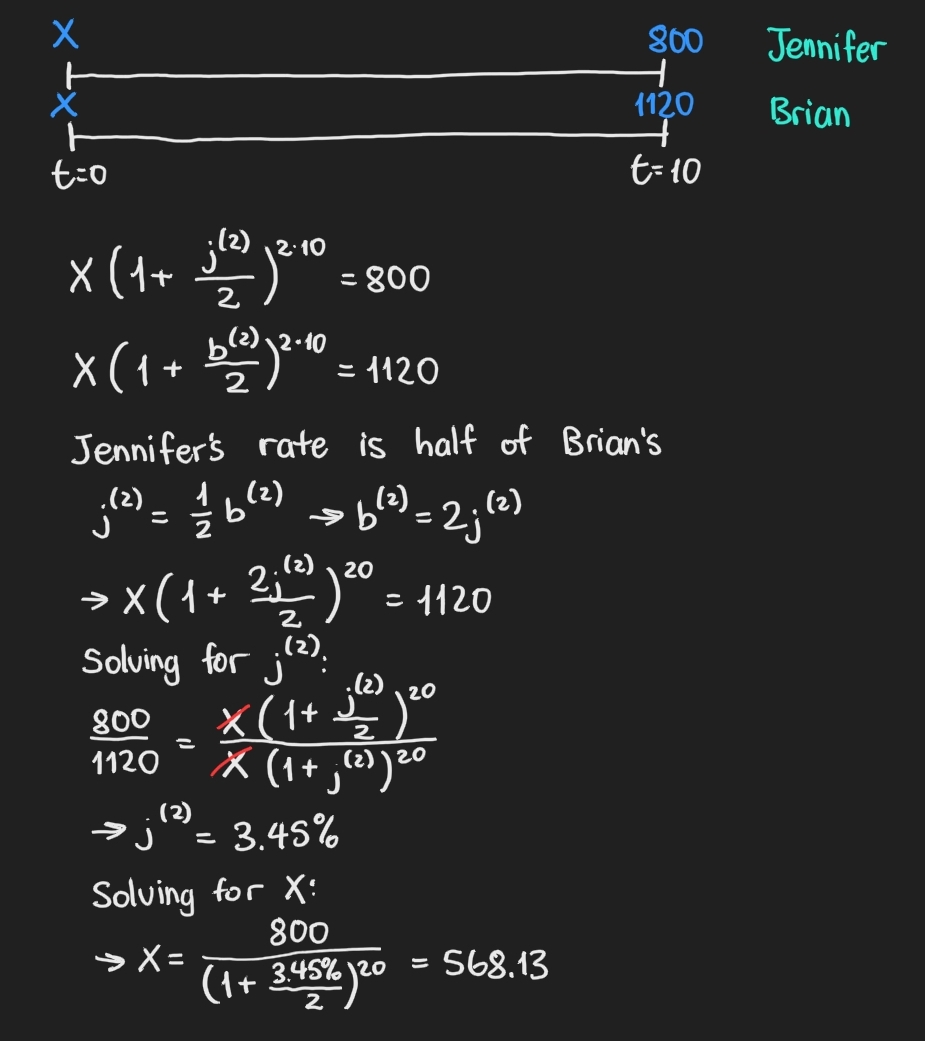 X 800 Jennifer
X 1120 Brian
t=0 t=10
X(1+ j^(2)/2)^2·10 = 800
X(1+ b^(2)/2)^2·10 = 1120
Jennifer's rate is half of Brian's
j^(2) = 1/2 b^(2) → b^(2) = 2j^(2)
→ X(1+ 2j^(2)/2)^20 = 1120
Solving for j^(2):
800/1120 = X(1+ j^(2)/2)^20 / X(1+ j^(2))^20
→ j^(2) = 3.45%
Solving for X:
→ X = 800/(1+ 3.45%/2)^20 = 568.13